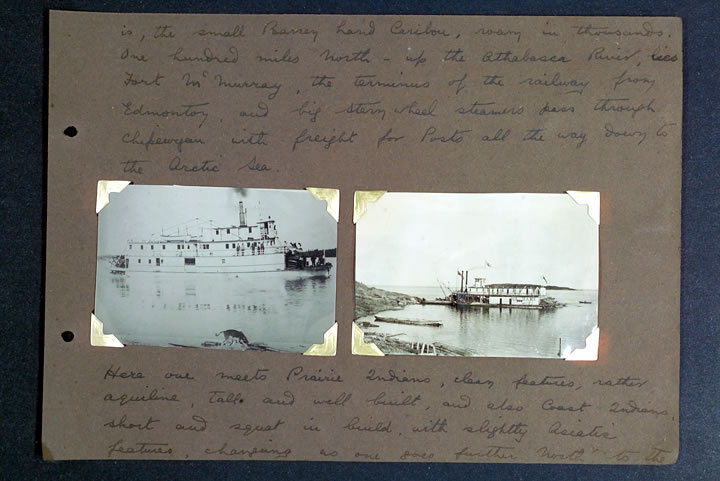 is, the small Barren Land Caribou, roam in thousands.
One hundred miles North - up the Athabasca River, lies
Fort McMurray, the terminus of the railway from
Edmonton, and big stern wheel steamers pass through
Chipewyan with freight for Posts all the way down to
the Arctic Sea.
Here one meets Prairie Indians, clean features, rather
aquiline, tall and well built, and also Coast Indians,
short and squat in build, with slightly Asiatic
features, changing as one goes further North to the